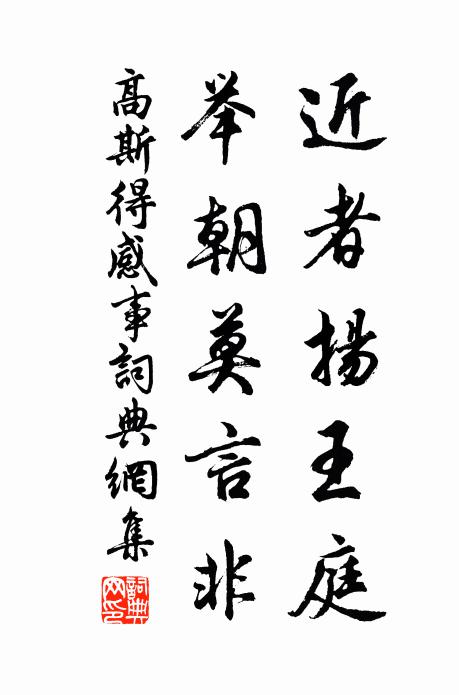 近者揚王庭
举朝莫言非
高斯得感事詞典網集
詞典網印